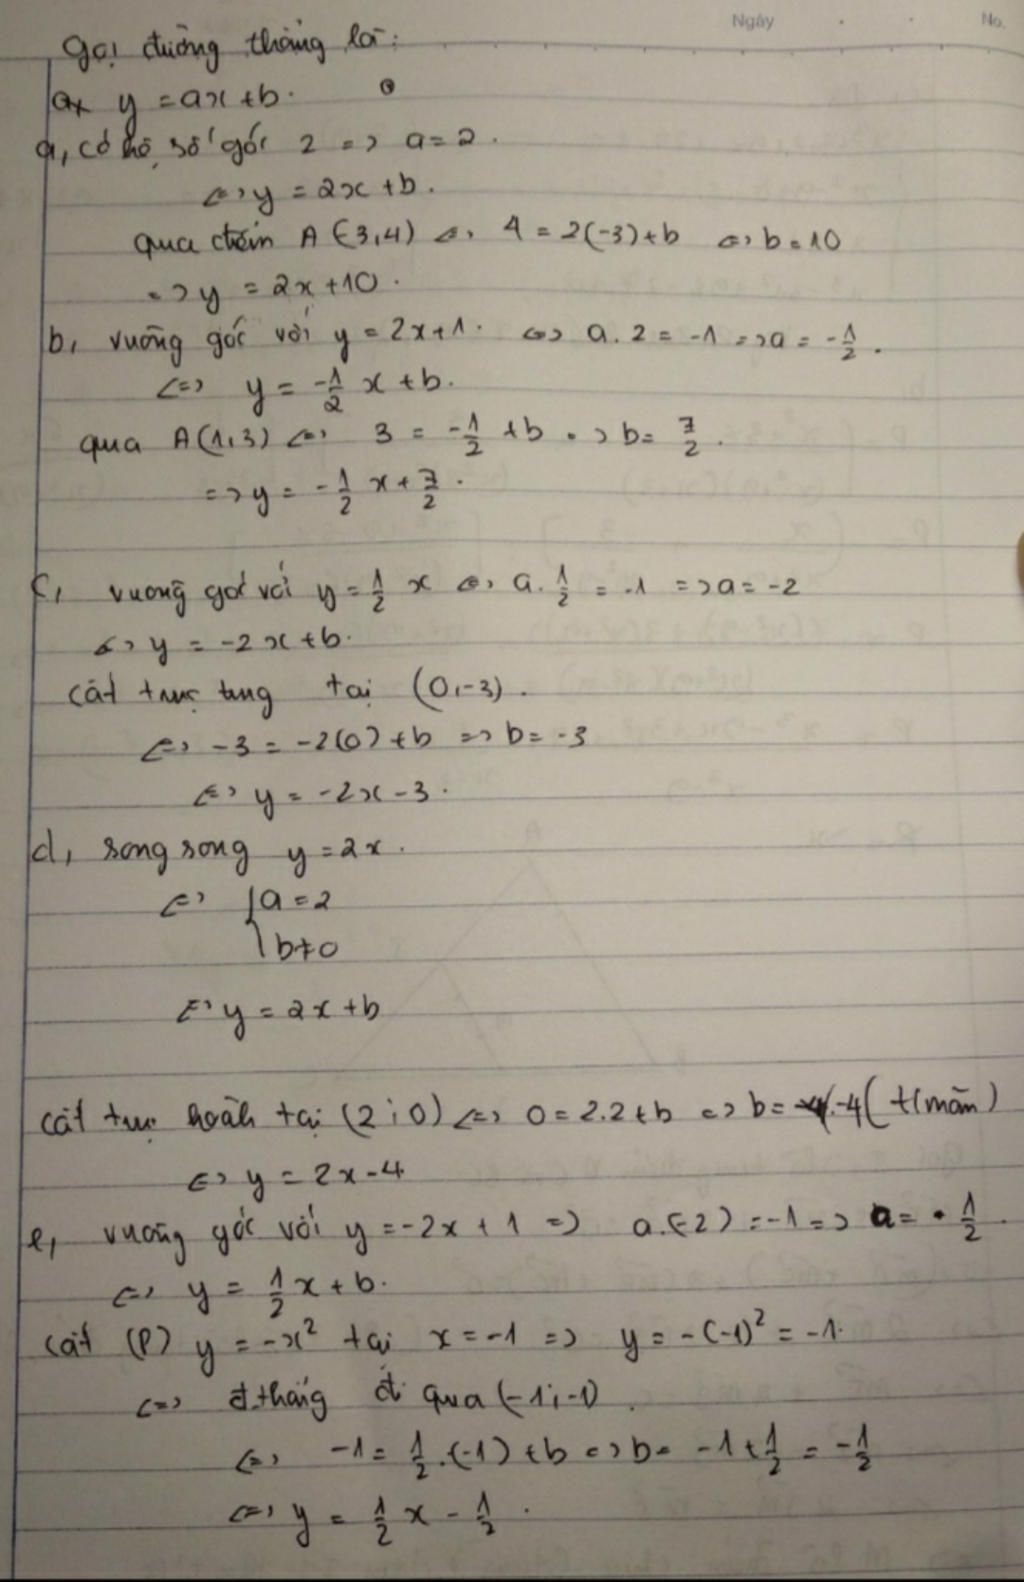 Ngày No.
Gọi đường thẳng là:
y = ax + b.
a, có hệ số góc 2 => a = 2.
<=> y = 2x + b.
qua điểm A(-3,4) <=> 4 = 2(-3) + b <=> b = 10
=> y = 2x + 10.
b, vuông góc với y = 2x + 1. <=> a. 2 = -1 => a = -1/2.
<=> y = -1/2 x + b.
qua A(1,3) <=> 3 = -1/2 + b => b = 7/2.
=> y = -1/2 x + 7/2.
c, vuông góc với y = 1/2 x <=> a. 1/2 = -1 => a = -2
<=> y = -2x + b.
cắt trục tung tại (0,-3).
<=> -3 = -2(0) + b => b = -3
<=> y = -2x - 3.
d, song song y = 2x.
<=> { a = 2
b ≠ 0
<=> y = 2x + b
cắt trục hoành tại (2;0) <=> 0 = 2.2 + b <=> b = -4 (t/mãn)
<=> y = 2x - 4
e, vuông góc với y = -2x + 1 => a.(-2) = -1 => a = 1/2.
<=> y = 1/2 x + b.
cắt (P) y = -x² tại x = -1 => y = -(-1)² = -1.
<=> đ.thẳng đi qua (-1;-1).
<=> -1 = 1/2.(-1) + b <=> b = -1 + 1/2 = -1/2
<=> y = 1/2 x - 1/2.